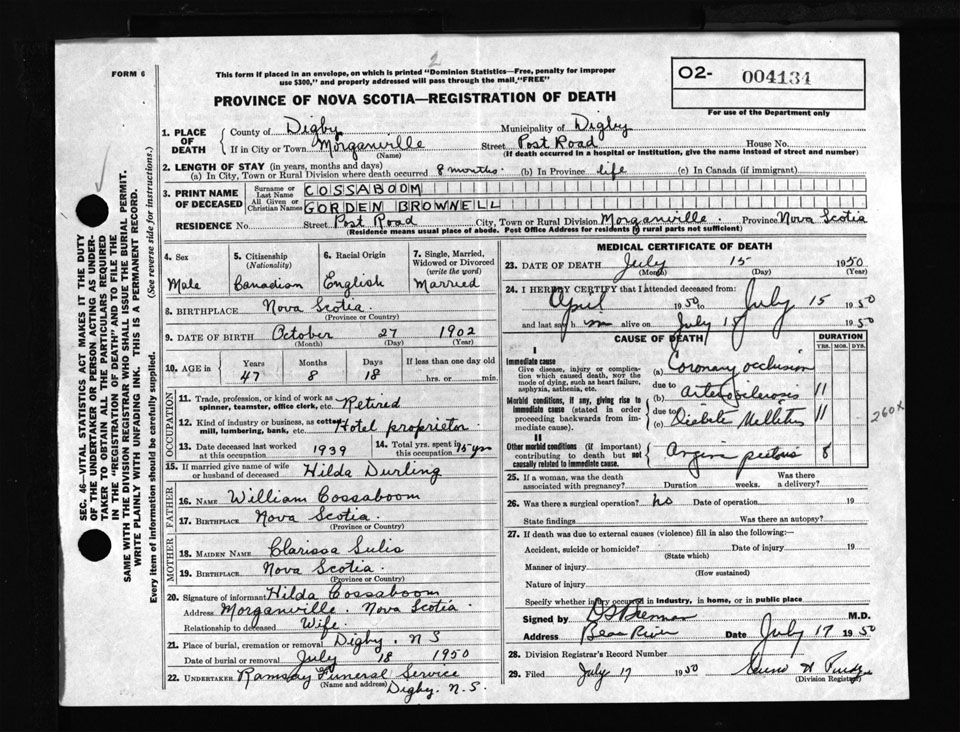 2
FORM 6
This form if placed in an envelope, on which is printed "Dominion Statistics—Free, penalty for improper
use $300," and properly addressed will pass through the mail "FREE"
O2- 004134
For use of the Department only
PROVINCE OF NOVA SCOTIA—REGISTRATION OF DEATH
1. PLACE OF DEATH { County of Digby Municipality of Digby
If in City or Town Morganville Street Post Road House No.
(Name) (If death occurred in a hospital or institution, give the name instead of street and number)
2. LENGTH OF STAY (in years, months and days)
(a) In City, Town or Rural Division where death occurred 8 months. (b) In Province life (c) In Canada (if immigrant)
3. PRINT NAME OF DECEASED { Surname or Last Name COSSABOOM
All Given or Christian Names GORDEN BROWNELL
RESIDENCE No. Street Post Road City, Town or Rural Division Morganville. Province Nova Scotia
(Residence means usual place of abode. Post Office Address for residents of rural parts not sufficient)
4. Sex Male
5. Citizenship (Nationality) Canadian
6. Racial Origin English
7. Single, Married, Widowed or Divorced (write the word) Married
8. BIRTHPLACE Nova Scotia
(Province or Country)
9. DATE OF BIRTH October 27 1902
(Month) (Day) (Year)
10. AGE in { Years 47 Months 8 Days 18 If less than one day old hrs. or min.
OCCUPATION
11. Trade, profession, or kind of work as spinner, teamster, office clerk, etc. Retired
12. Kind of industry or business, as cotton mill, lumbering, bank, etc. Hotel proprietor.
13. Date deceased last worked at this occupation 1939
14. Total yrs. spent in this occupation 15 yrs
15. If married give name of wife or husband of deceased Hilda Durling
FATHER
16. NAME William Cossaboom
17. BIRTHPLACE Nova Scotia.
(Province or Country)
MOTHER
18. MAIDEN NAME Clarissa Sulis
19. BIRTHPLACE Nova Scotia.
(Province or Country)
20. Signature of informant Hilda Cossaboom
Address Morganville. Nova Scotia.
Relationship to deceased Wife.
21. Place of burial, cremation or removal Digby. N S
Date of burial or removal July 18 1950
22. UNDERTAKER Ramsay Funeral Service
(Name and address) Digby. N. S.
MEDICAL CERTIFICATE OF DEATH
23. DATE OF DEATH July 15 1950
(Month) (Day) (Year)
24. I HEREBY CERTIFY that I attended deceased from:
April 1950 to July 15 1950
and last saw h im alive on July 15 1950
CAUSE OF DEATH
DURATION
YRS. MOS. DYS.
I
Immediate cause
Give disease, injury or complication which caused death, NOT the mode of dying, such as heart failure, asphyxia, asthenia, etc.
(a) Coronary occlusion
due to
Morbid conditions, if any, giving rise to immediate cause (stated in order proceeding backwards from immediate cause).
(b) Arteriosclerosis 11
due to
(c) Diabetes Mellitus 11
260X
II
Other morbid conditions (if important) contributing to death but not causally related to immediate cause.
Angina pectoris 8
25. If a woman, was the death associated with pregnancy? Duration weeks. Was there a delivery?
26. Was there a surgical operation? no Date of operation 19
State findings Was there an autopsy?
27. If death was due to external causes (violence) fill in also the following:—
Accident, suicide or homicide? Date of injury 19
(State which)
Manner of injury
(How sustained)
Nature of injury
Specify whether injury occurred in industry, in home, or in public place
Signed by M.D.
Address Bear River Date July 17 1950
28. Division Registrar's Record Number
29. Filed July 17 1950
(Division Registrar)
SEC. 46—VITAL STATISTICS ACT MAKES IT THE DUTY
OF THE UNDERTAKER OR PERSON ACTING AS UNDERTAKER
TO OBTAIN ALL THE PARTICULARS REQUIRED
IN THE "REGISTRATION OF DEATH" AND TO FILE THE
SAME WITH THE DIVISION REGISTRAR WHO SHALL ISSUE THE BURIAL PERMIT.
WRITE PLAINLY WITH UNFADING INK. THIS IS A PERMANENT RECORD.
Every item of information should be carefully supplied. (See reverse side for instructions.)